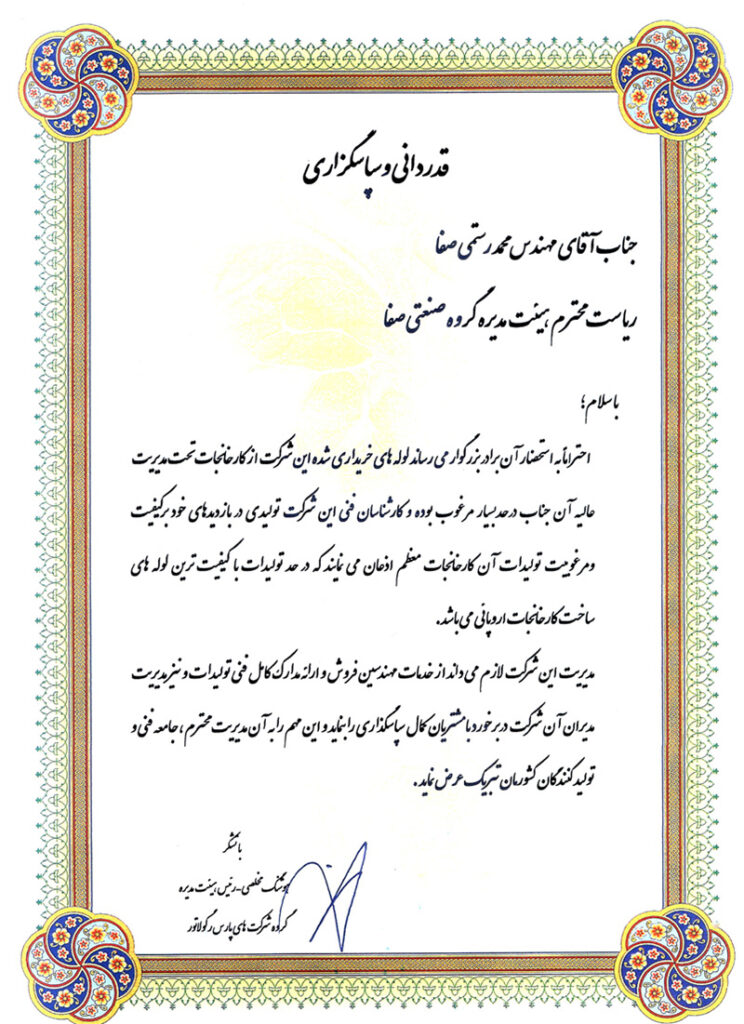 قدردانی و سپاسگزاری
جناب آقای مهندس محمد رستمی صفا
ریاست محترم هیئت مدیره گروه صنعتی صفا
با سلام؛
احتراماً به استحضار آن برادر بزرگوار می رساند لوله های خریداری شده این شرکت از کارخانجات تحت مدیریت
عالیه آن جناب در حد بسیار مرغوب بوده و کارشناسان فنی این شرکت تولیدی در بازدیدهای خود بر کیفیت
و مرغوبیت تولیدات آن کارخانجات معظم اذعان می نمایند که در حد تولیدات با کیفیت ترین لوله های
ساخت کارخانجات اروپائی می باشد.
مدیریت این شرکت لازم می داند از خدمات مهندسین فروش و ارائه مدارک کامل فنی تولیدات و نیز مدیریت
مدیران آن شرکت در برخورد با مشتریان کمال سپاسگذاری را بنماید و این مهم را به آن مدیریت محترم ، جامعه فنی و
تولید کنندگان کشورمان تبریک عرض نماید .
با تشکر
هوشنگ مخلصی - رئیس هیئت مدیره
گروه شرکت های پارس رگولاتور